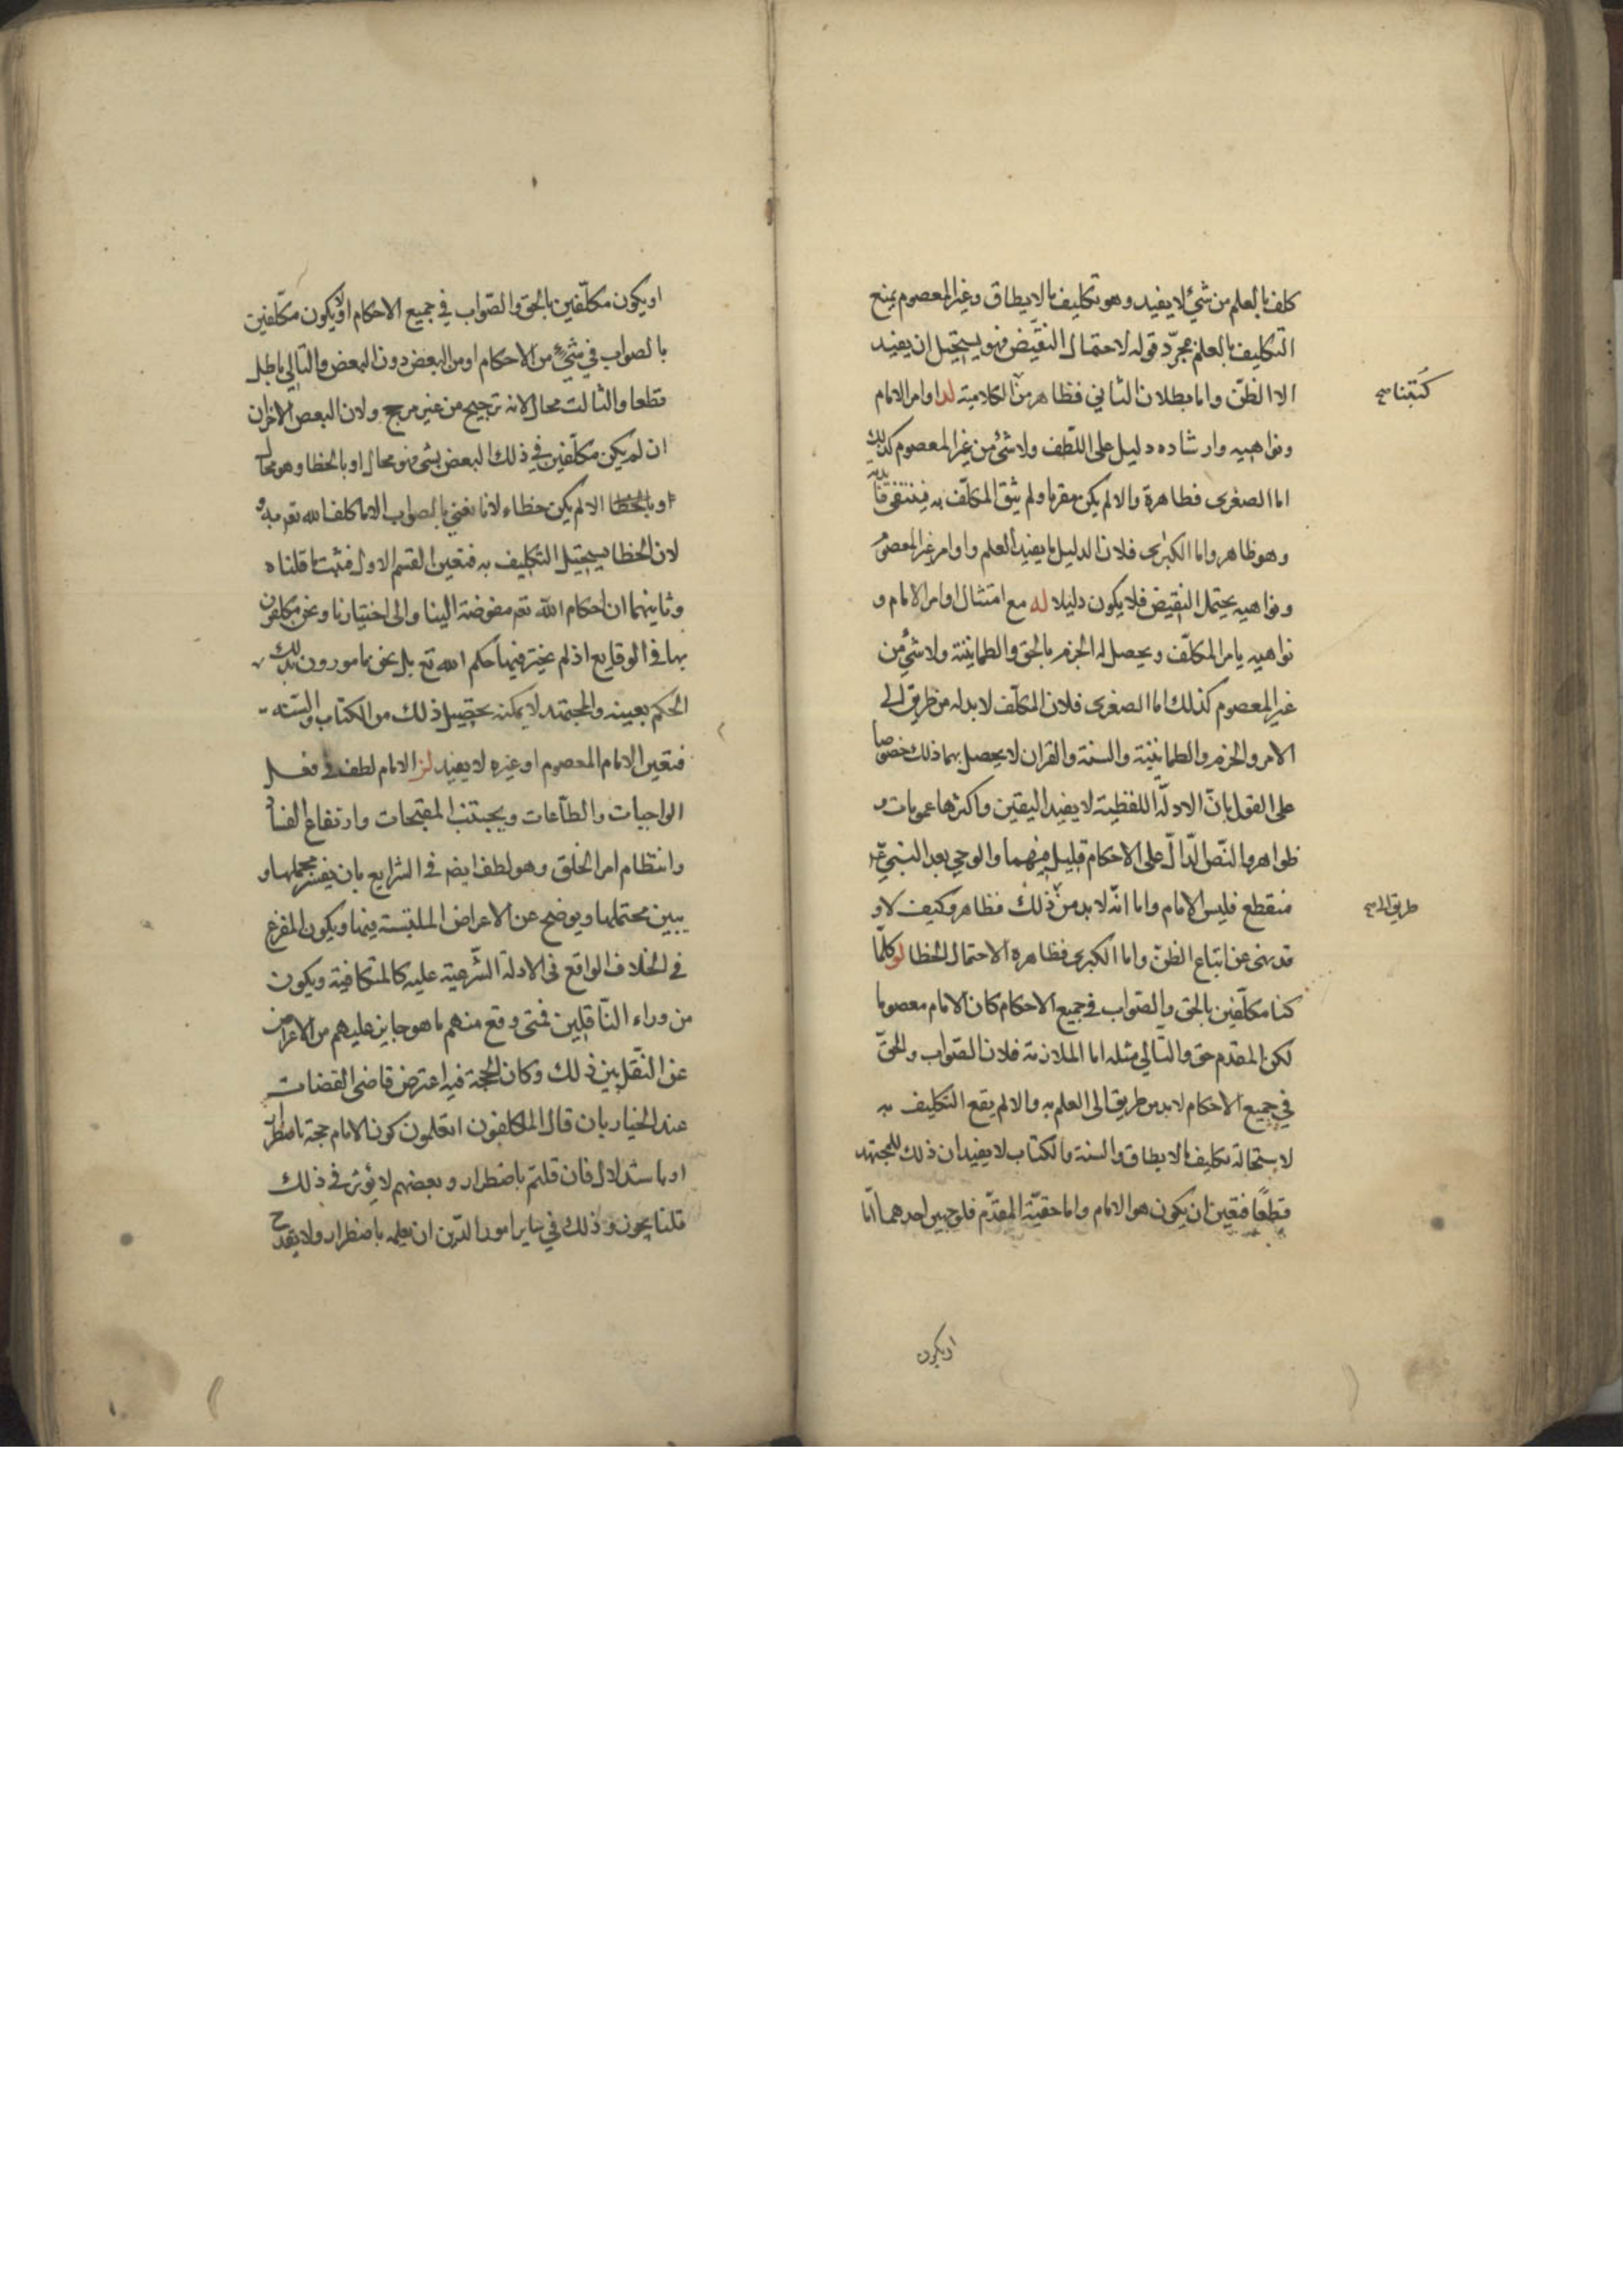 كلف بالعلم من شيء لا يفيد وهو تكليف ما لا يطاق وغير المعصوم يمنع
التكليف بالعلم بمجرد قوله لاحتمال النقيض فهو يستحيل ان يفيد
الا الظنّ واما بطلان الثاني فظاهر من الكلامية لد اوامر الامام
كتبنا صح
ونواهيه وارشاده دليل على اللّطف ولا شئ من غير المعصوم كذلك
اما الصغرى فظاهرة والا لم يكن مقربا ولم يثق المكلّف به فينتفي فائدته
وهو ظاهر واما الكبرى فلان الدليل ما يفيد العلم واوامر غير المعصوم
ونواهيه يحتمل النقيض فلا يكون دليلا له مع امتثال اوامر الامام و
نواهيه يامر المكلّف ويحصل له الجزم بالحق والطمانينة ولا شئ من
غير المعصوم كذلك اما الصغرى فلان المكلّف لا بد له من طريق الى
الامر والجزم والطمانينة والسنة والقران لا يحصل بهما ذلك خصوصا
على القول بانّ الادلّة اللفظية لا يفيد اليقين واكثرها عمومات و
ظواهر والنّص الدّالّ على الاحكام قليل منهما والوحي بعد النبي
منقطع فليس الامام واما انّه لا بد من ذلك فظاهر وكيف لا و
طريق الى صح
قد نهى عن اتباع الظنّ واما الكبرى فظاهرة لاحتمال الخطا لو كلّما
كنا مكلّفين بالحق والصّواب في جميع الاحكام كان الامام معصوما
لكن المقدم حق والتالي مثله اما الملازمة فلان الصّواب والحقّ
في جميع الاحكام لا بد من طريق الى العلم به والا لم يقع التكليف به
لاستحالة تكليف ما لا يطاق والسنة والكتاب لا يفيدان ذلك للمجتهد
قطعًا فتعين ان يكون هو الامام واما حقيّة المقدّم فلوجهين احدهما انّا
او يكون
او يكون مكلّفين بالحق والصّواب في جميع الاحكام او لا يكون مكلّفين
بالصواب في شئ من الاحكام او من البعض دون البعض والتالي باطل
قطعا والثالث محال لانه ترجيح من غير مرجح ولان البعض الاخران
ان لم يكن مكلّفين في ذلك البعض بشئ فهو محال او بالخطا وهو محال
او بالخطا الا لم يكن خطاء لانا نعني بالصواب الا ما كلف الله تعم به و
لان الخطا يستحيل التكليف به فتعين القسم الاول فثبت ما قلناه
وثانيهما ان احكام الله تعم مفوضة الينا والى اختيارنا ونحن مكلفون
بها في الوقايع اذ لم يخير فيها حكم الله تع بل نحن مامورون بذلك
الحكم بعينه والمجتهد لا يمكنه تحصيل ذلك من الكتاب والسنه
فتعين الامام المعصوم او غيره لا يفيد لز الامام لطف في فعل
الواجبات والطاعات ويجتنب المقبحات وارتفاع الفساد
وانتظام امر الخلق وهو لطف ايضا في الشرايع بان يفسر مجملها و
يبين محتملها ويوضح عن الاعراض الملتبسة فيها ويكون المفزع
في الخلاف الواقع في الادلة الشّرعية عليه كالمتكافية ويكون
من وراء النّاقلين فمتى وقع منهم ما هو جايز عليهم من الاعراض
عن النّقل بين ذلك وكان الحجة فيه اعترض قاضى القضات
عبد الجبار بان قال المكلفون اتعلمون كون الامام حجة باضطرار
او باستدلال فان قلتم باضطرار وبعضهم لا يؤثر في ذلك
قلنا يجوز وذلك في ساير امور الدّين ان نعلمه باضطرار ولا يقدح